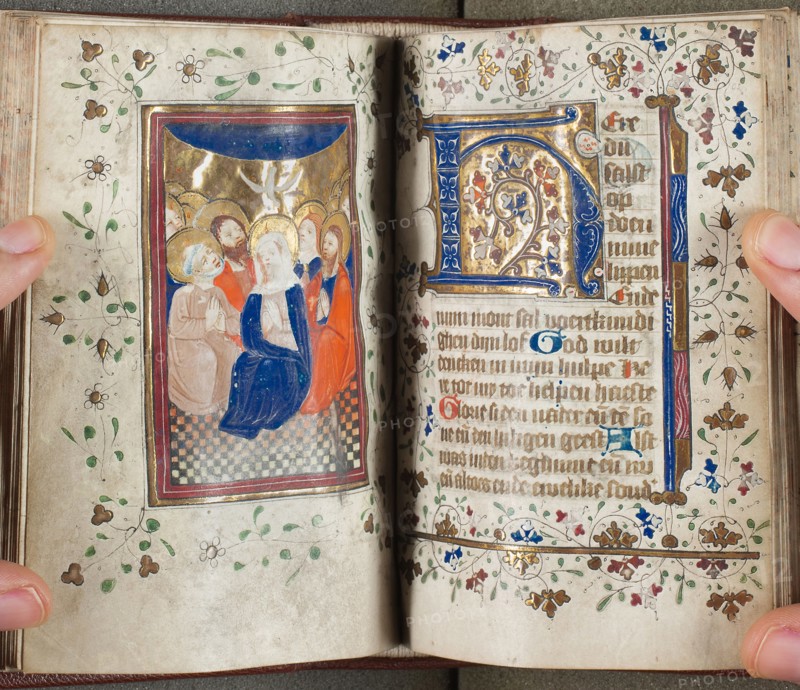 Here
du
salst
op
doen
mine
lippen
Ende
minn mont sal voertkundi
ghen dijn lof God wilt
dencken in mijn hulpe He
re tot my toe helpen haeste
Glorie si den vader en te so
ne en den heilighen geest Alst
was inden beghinne en nu
en altoes ende ewelike sonder